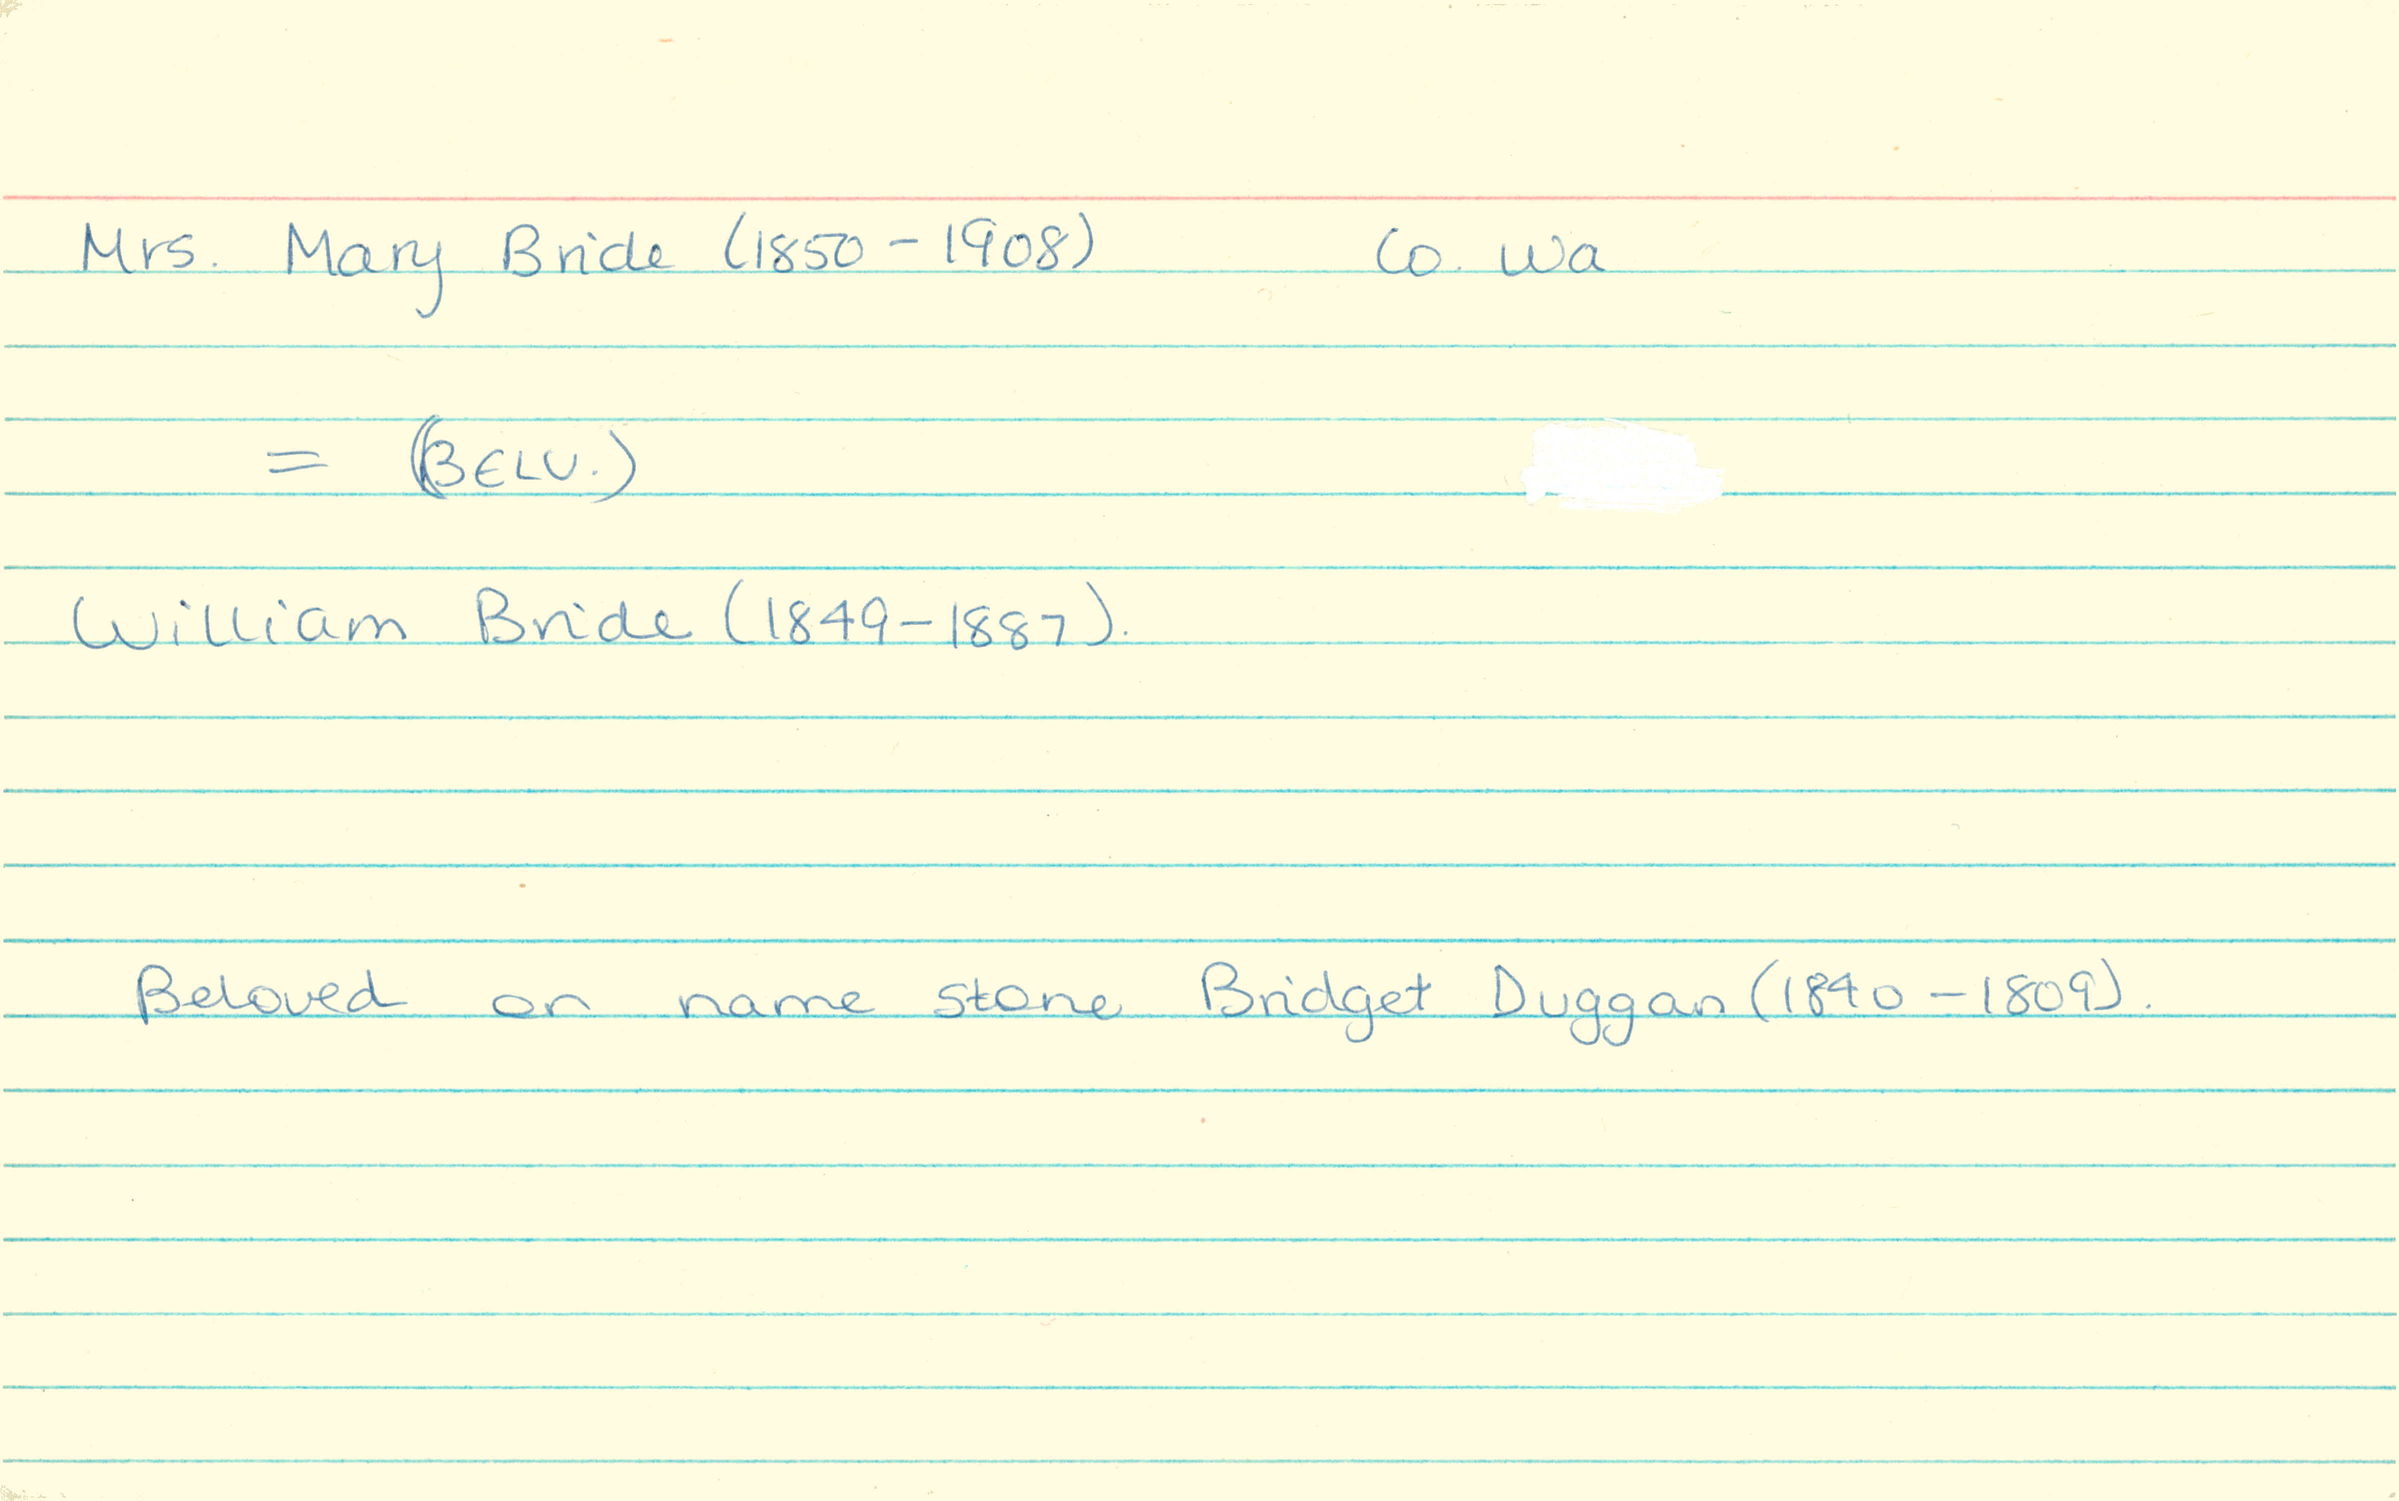 Mrs. Mary Bride (1850-1908) Co. Wa
= (BELV.)
William Bride (1849-1887).
Beloved on name stone Bridget Duggan (1840-1809).